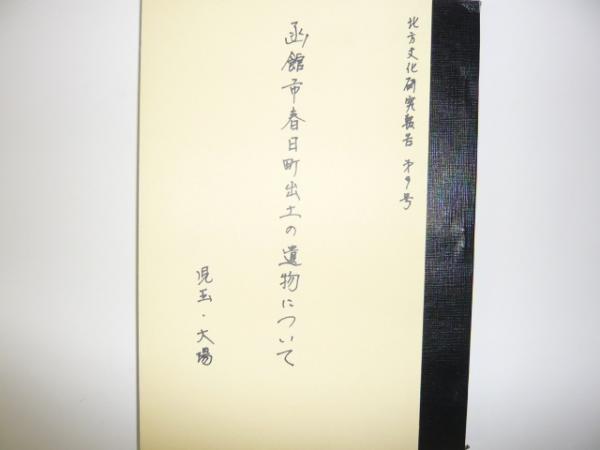 北方文化研究報告 第9号
函館市春日町出土の遺物について
児玉・大場